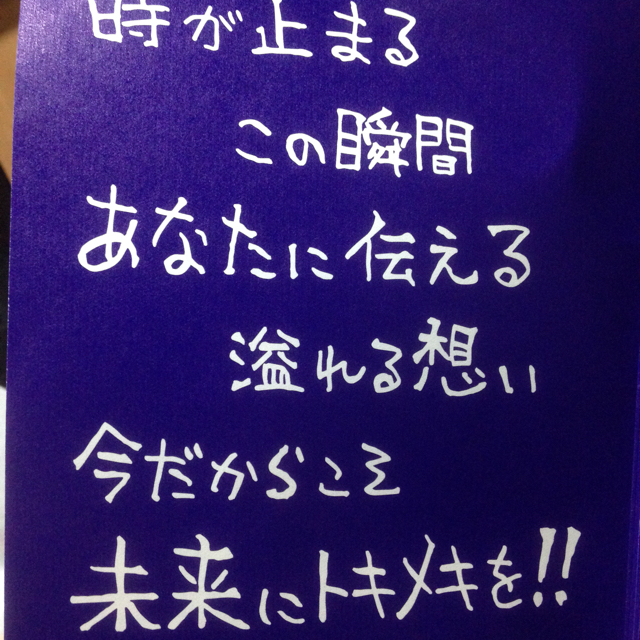 時が止まる
この瞬間
あなたに伝える
溢れる想い
今だからこそ
未来にトキメキを!!